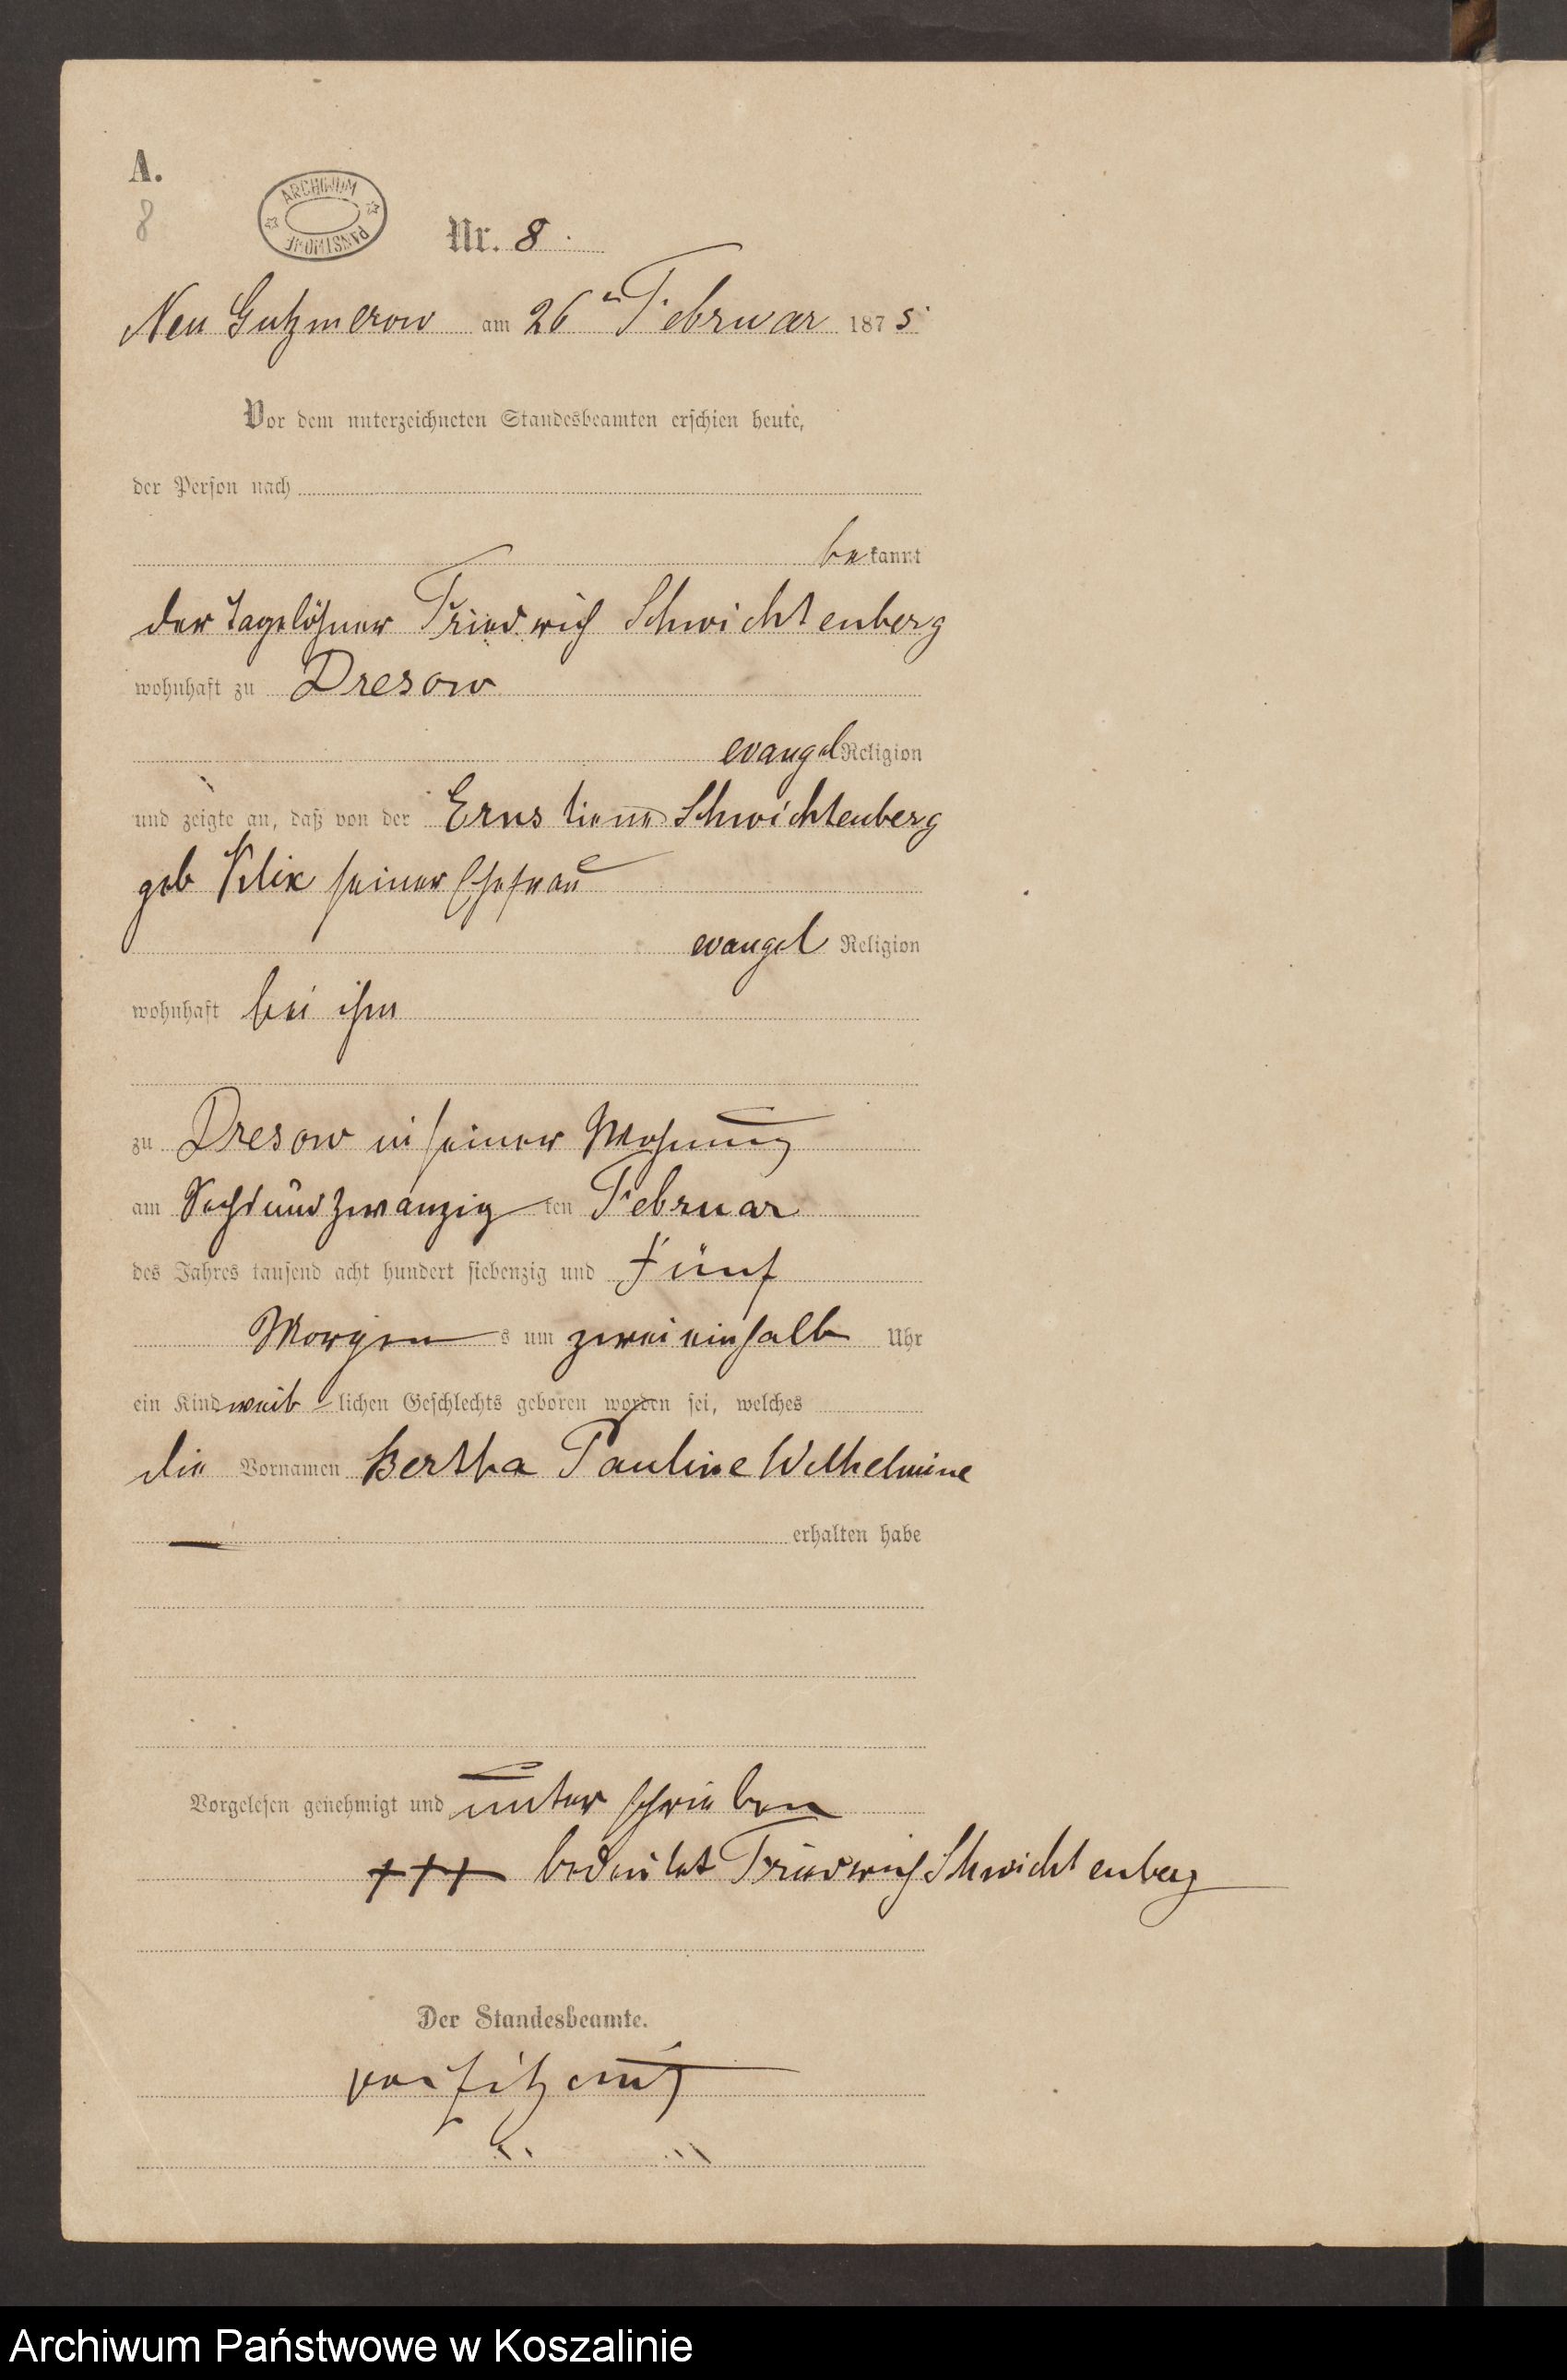 A.
8
ARCHIWUM PAŃSTWOWE
Nr. 8.
Neu Gutzmerow am 26ten Februar 1875
Vor dem unterzeichneten Standesbeamten erschien heute,
der Person nach
bekannt
der Tagelöhner Friedrich Schwichtenberg
wohnhaft zu Dresow
evangel Religion
und zeigte an, daß von der Ernstiene Schwichtenberg
geb Klix seiner Ehefrau
evangel Religion
wohnhaft bei ihm
zu Dresow in seiner Wohnung
am Sechsundzwanzig ten Februar
des Jahres tausend acht hundert siebenzig und fünf
Morgen s um zweieinhalb Uhr
ein Kind weib-lichen Geschlechts geboren worden sei, welches
die Vornamen Bertha Pauline Wilhelmine
erhalten habe
Vorgelesen genehmigt und unterschrieben
+++ bedeutet Friedrich Schwichtenberg
Der Standesbeamte.
Archiwum Państwowe w Koszalinie